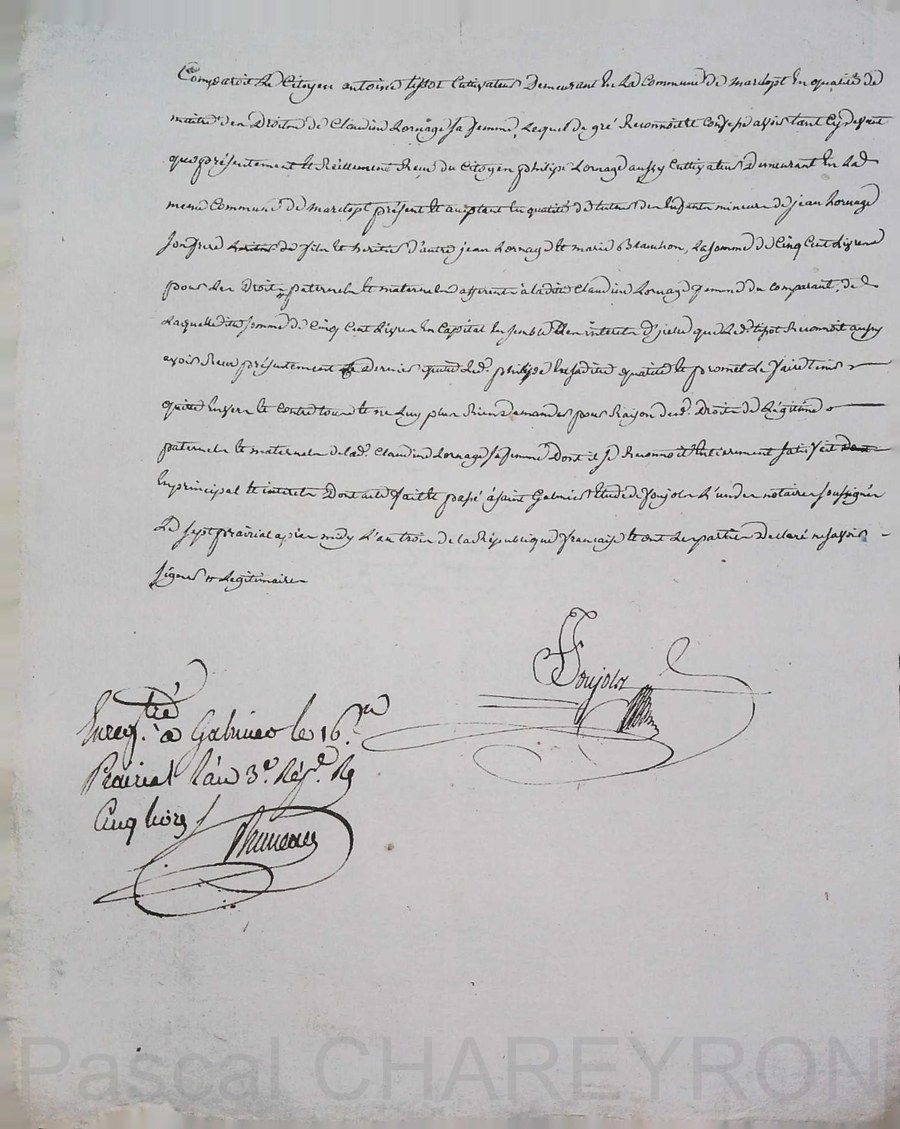 Comparoit Le Citoyen antoine tissot Cultivateur Demeurant En La Commune De marclopt En qualité de
maitre des Droits de Claudine Lornage sa femme, Lequel de gré Reconnoit et Confesse avoir tant Cy devant
que présentement et Réellement Reçu du Citoyen philipe Lornage aussy Cultivateur Demeurant En Lad
meme Commune De marclopt présent et aceptant En qualité de tuteur des Enfants mineurs de jean Lornage
son frere de fils et heritier d'autre jean Lornage et marie La somme de Cinq Cent Livres
pour Les Droits paternels et maternels afferents à ladite Claudine Lornage femme du comparant, de
Laquelle dite somme de Cinq Cent Livres En Capital Ensemble des interets D'icelle que Led. tissot Reconnoit aussy
avoir Reçu présentement Dernier quitte Led. philipe Esdite qualité et promet Le faire tenir
quitte Envers et Contre tous et ne Luy plus Rien Demander pour Raison desd. Droits de Légitime
paternels et maternels de lad. Claudine Lornage sa femme Dont il se Reconnoit Entierement satisfait
En principal et interets Dont acte fait et passé à saint Galmier Etude de Foujols L'un des notaires soussigné
Le sept prairial après midy L'an trois de la République française et ont Les parties Declaré ne savoir
signer Légitimaires
Foujols
Enreg.tré à Galmier le 16
Prairial l'an 3e Rép. R
Cinq livres